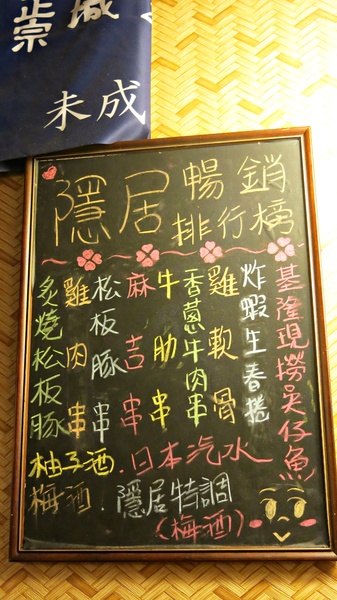 正宗
成
未成
隱居
暢銷
排行榜
基隆現撈吳仔魚
炸蝦生春捲
雞軟骨
香蔥牛肉串
牛肋串
麻吉串
松板豚串
雞肉串
炙燒松板豚
柚子酒.日本汽水
梅酒.隱居特調
(梅酒)